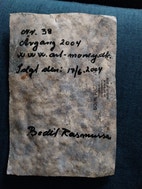 nr. 38
Årgang 2004
www.art-money.dk
Solgt den: 19/6.2004
Bodil Rasmussen